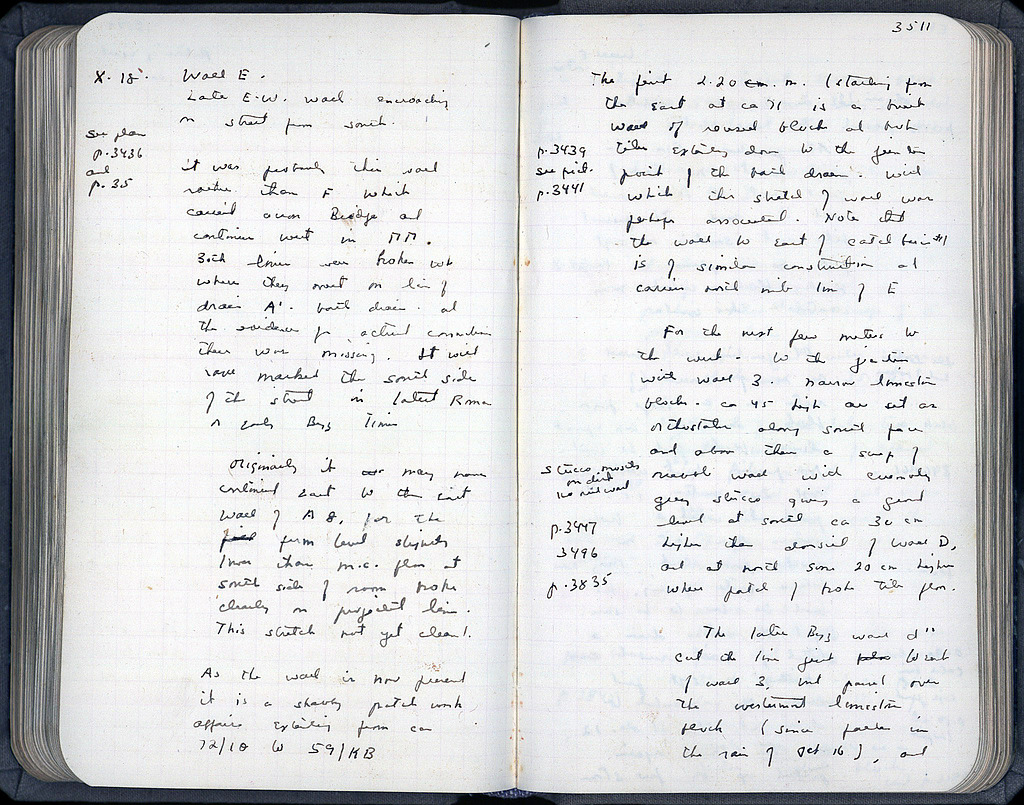 X. 18. Wall E.
Late E-W. wall encroaching
on street from south.
See plan
p.3436
and
p. 35
it was probably this wall
rather than F which
carried across Bridge and
continues west in MM.
Both lines were broken out
where they meet on line of
drain A'. and
the evidence for actual connection
there was missing. It will
have marked the south side
of the street in latest Roman
or early Byz Times
Originally it may have
continued east to the east
wall of A 8, for the
firm level slightly
lower than m.c. floor at
south side of room broke
clearly on projected line.
This stretch not yet cleared.
As the wall is now preserved
it is a shabby patch work
affair extending from ca
72/18 to 59/KB
3511
The first 2.20 m. (starting from
the east at ca 71 is a
wall of reused blocks and broken
tiles extending down to the junction
p.3439
see pict.
p.3441
point of the drain. with
which this stretch of wall was
perhaps associated. Note that
the wall to East of catch basin #1
is of similar construction and
carries north line of E
For the next few meters to
the west. to the junction
with wall 3. narrow limestone
blocks. ca 45 high are set as
orthostates along south face
and above them a scrap of
stucco mostly
on dirt
no real wall
wall with crumbly
grey stucco giving a good
level at south ca 30 cm
p.3447
3496
p.3835
higher than of Wall D,
and at north some 20 cm higher
where patch of broken tile floor.
The later Byz wall d''
cut the line just West
of wall 3, but passed over
the westernmost limestone
block (since fallen in
the rain of Oct 16), and